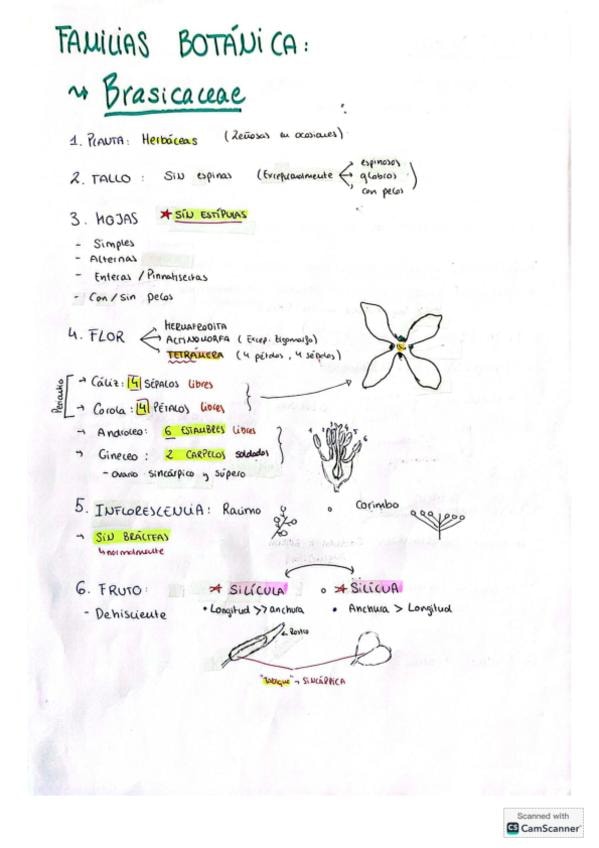 FAMILIAS BOTÁNICA:
↝ Brasicaceae
1. PLANTA: Herbáceas (Leñosas en ocasiones)
2. TALLO: Sin espinas (Excepcionalmente espinosos
glabros
con pelos)
3. HOJAS ★ SIN ESTÍPULAS
- Simples
- Alternas
- Enteras / Pinnatisectas
- Con / Sin pelos
4. FLOR HERMAFRODITA
ACTINOMORFA (Excep. Zigomorfo)
TETRÁMERA (4 pétalos, 4 sépalos)
Periantio
→ Cáliz: 4 SÉPALOS libres
→ Corola: 4 PÉTALOS libres
→ Androceo: 6 ESTAMBRES libres
→ Gineceo: 2 CARPELOS soldados
- ovario sincárpico y súpero
1 2 3 4 5 6
5. INFLORESCENCIA: Racimo o Corimbo
→ SIN BRÁCTEAS
↳ normalmente
6. FRUTO: ★ SILÍCULA o ★ SILICUA
- Dehiscente • Longitud >> anchura • Anchura > Longitud
Rostro
"Tabique" → SINCÁRPICA
Scanned with
CS CamScanner